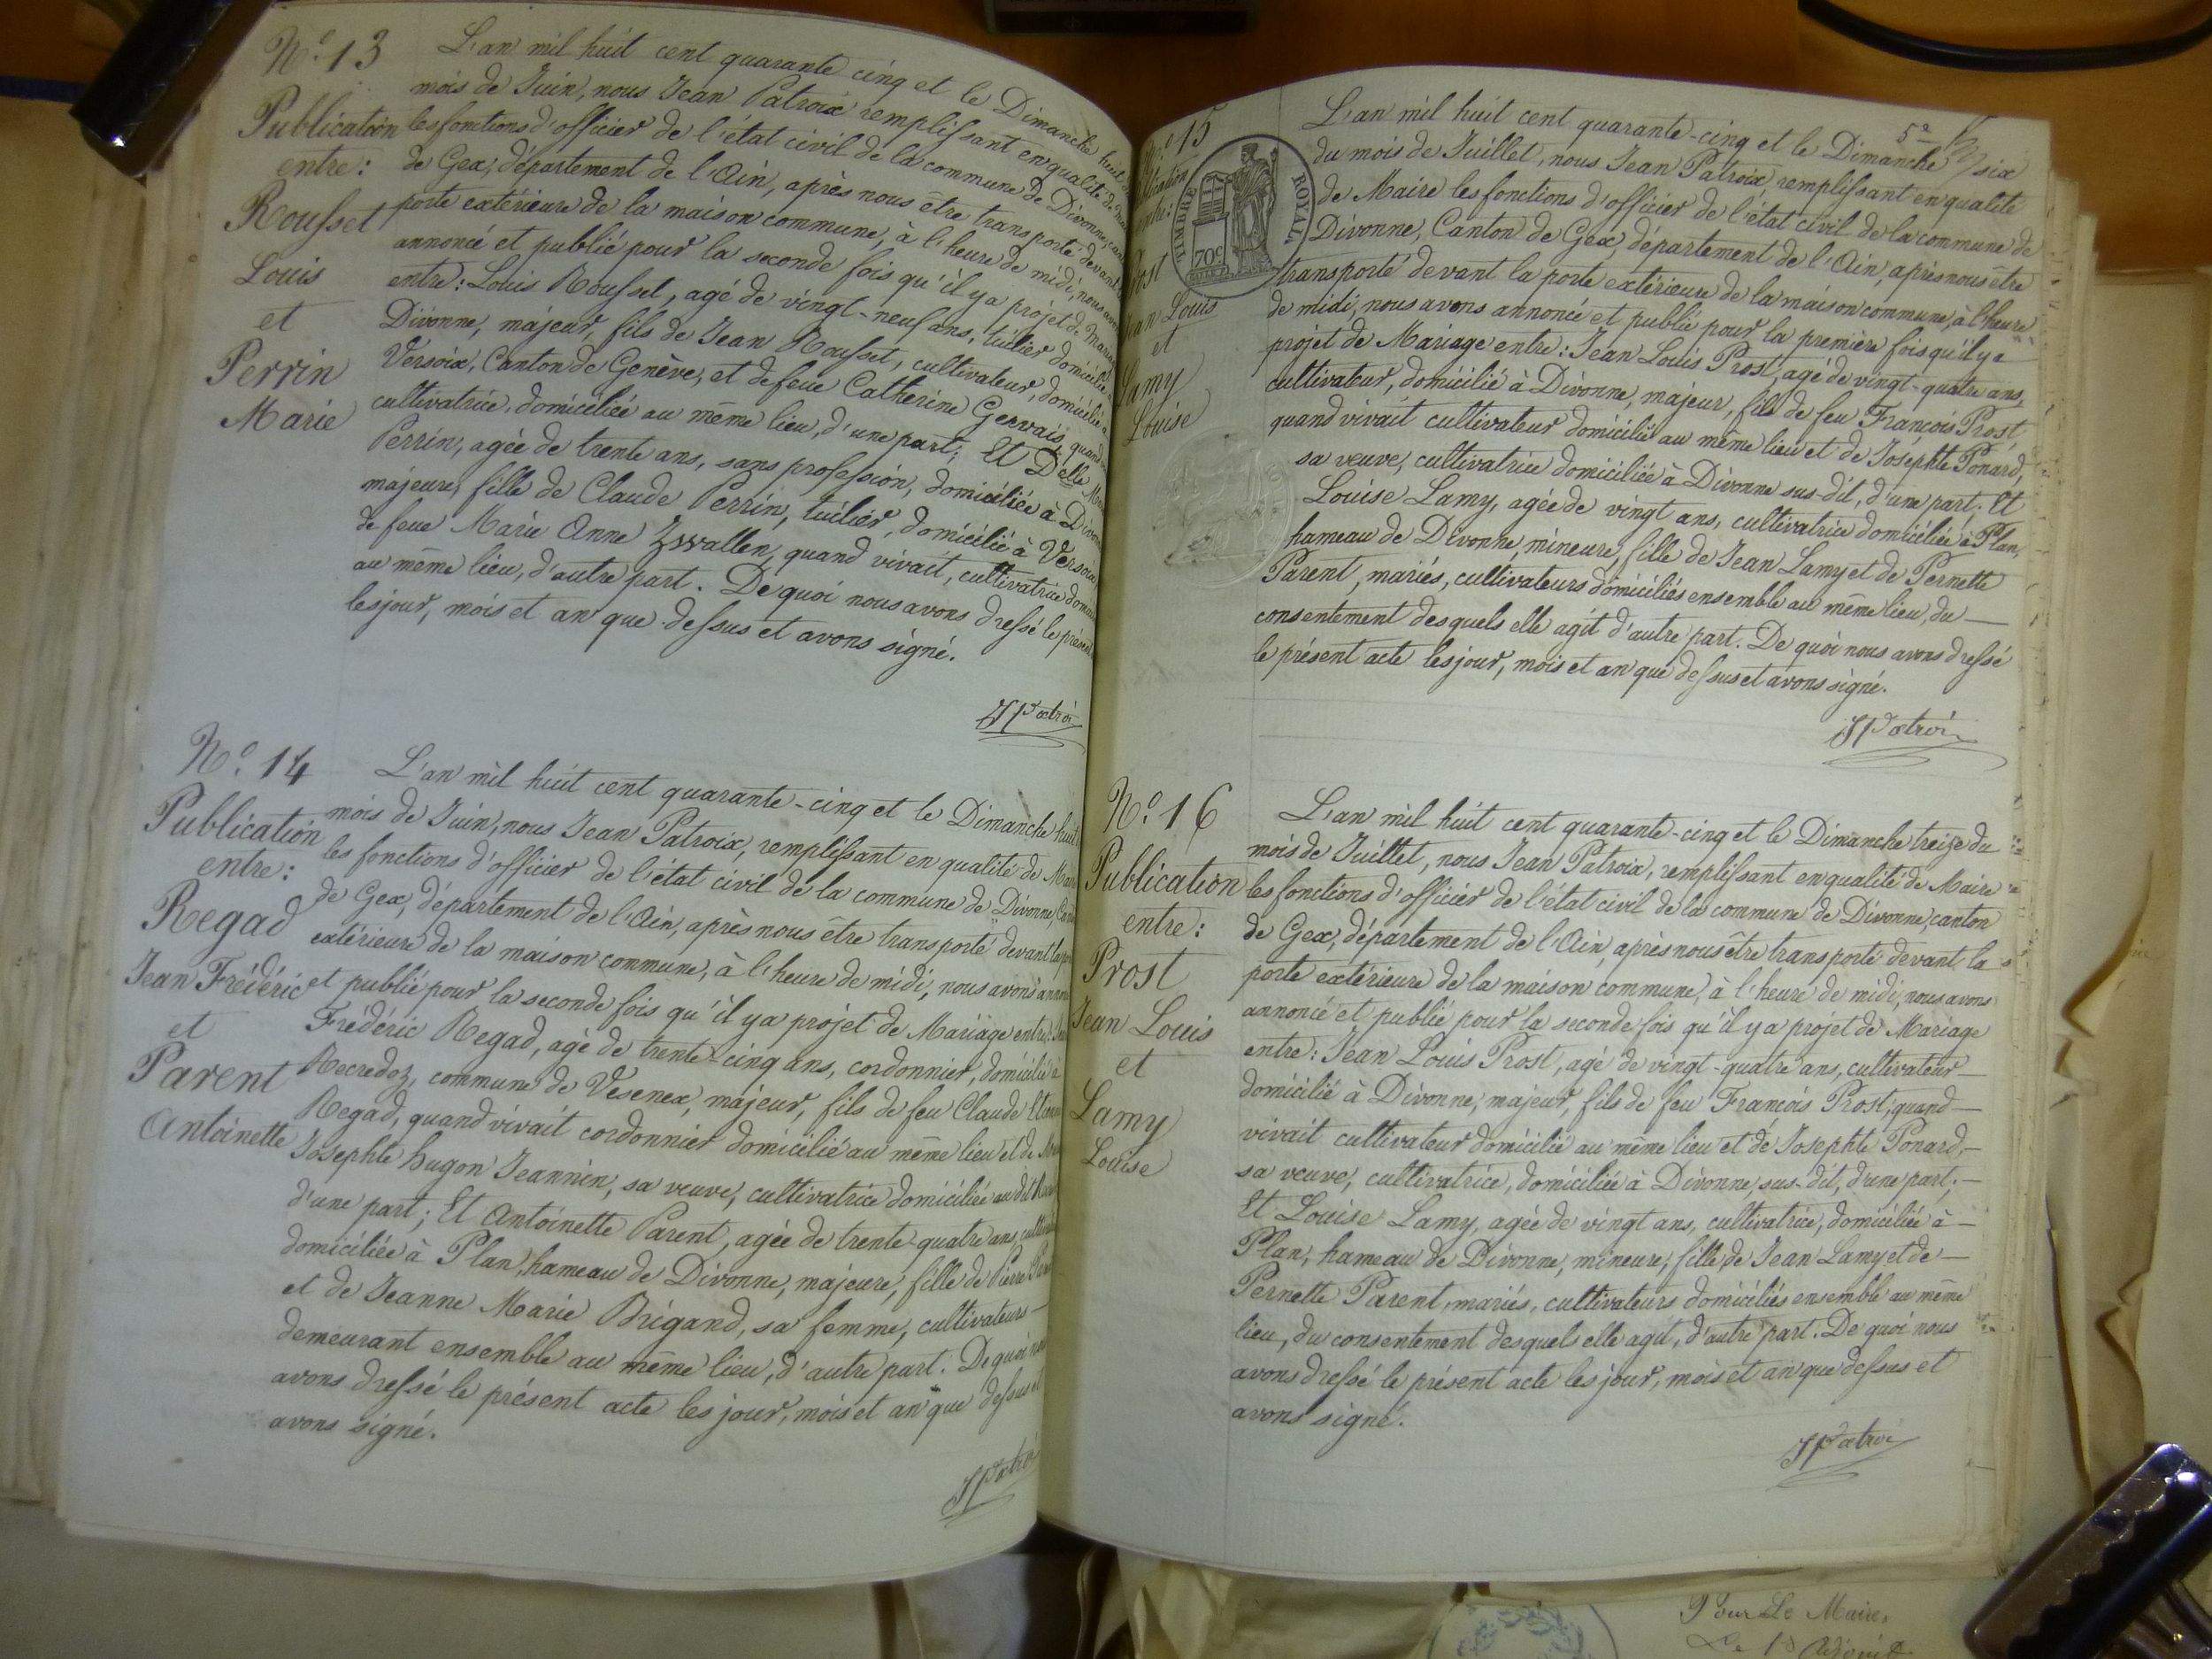 N.º 13
Publication
entre:
Rousset
Louis
et
Perrin
Marie
L'an mil huit cent quarante cinq et le Dimanche huit
mois de Juin, nous Jean Patroix remplissant en qualité de
les fonctions d'officier de l'état civil de la commune de Divonne,
de Gex, département de l'Ain, après nous être transporté devant
porte extérieure de la maison commune, à l'heure de midi, nous
annoncé et publié pour la seconde fois qu'il y a projet de
entre: Louis Rousset, agé de vingt-neuf ans, tuilier, domicilié
Divonne, majeur, fils de Jean Rousset, cultivateur, domicilié à
Versoix, Canton de Genève, et de feue Catherine Gervais, quand
cultivatrice, domiciliée au même lieu, d'une part; Et Delle
Perrin, agée de trente ans, sans profession, domiciliée à
majeure, fille de Claude Perrin, tuilier, domicilié à Versoix,
de feue Marie Anne Zwallen, quand vivait, cultivatrice
au même lieu, d'autre part. De quoi nous avons dressé le
les jour, mois et an que dessus et avons signé.
JPatroi
N.º 14
Publication
entre:
Regad
Jean Frédéric
et
Parent
Antoinette
L'an mil huit cent quarante-cinq et le Dimanche huit
mois de Juin, nous Jean Patroix, remplissant en qualité de
les fonctions d'officier de l'état civil de la commune de Divonne,
de Gex, département de l'Ain, après nous être transporté devant
extérieure de la maison commune, à l'heure de midi, nous avons
et publié pour la seconde fois qu'il y a projet de Mariage entre:
Frédéric Regad, agé de trente-cinq ans, cordonnier, domicilié à
commune de Vesenex, majeur, fils de feu Claude
Regad, quand vivait cordonnier domicilié au même lieu et de
Josephte hugon Jeannin, sa veuve, cultivatrice domiciliée au dit
d'une part; Et Antoinette Parent, agée de trente-quatre ans,
domiciliée à Plan, hameau de Divonne, majeure, fille de Pierre
et de Jeanne Marie Brigand, sa femme, cultivateurs
demeurant ensemble au même lieu, d'autre part. De quoi
avons dressé le présent acte les jour, mois et an que dessus et
avons signé.
JPatroi
N.º 15
entre:
Jean Louis
et
Lamy
Louise
TIMBRE ROYAL
70C
5e
L'an mil huit cent quarante-cinq et le Dimanche six
du mois de Juillet, nous Jean Patroix, remplissant en qualité
de Maire les fonctions d'officier de l'état civil de la commune de
Divonne, Canton de Gex, département de l'Ain, après nous être
transporté devant la porte extérieure de la maison commune, à l'heure
de midi, nous avons annoncé et publié pour la première fois qu'il y a
projet de Mariage entre: Jean Louis Prost, agé de vingt-quatre ans,
cultivateur, domicilié à Divonne, majeur, fils de feu François Prost,
quand vivait cultivateur domicilié au même lieu et de Josephte Ponard,
sa veuve, cultivatrice domiciliée à Divonne sus-dit, d'une part. Et
Louise Lamy, agée de vingt ans, cultivatrice domiciliée à Plan,
hameau de Divonne, mineure, fille de Jean Lamy et de Pernette
Parent, mariés, cultivateurs domiciliés ensemble au même lieu, du
consentement desquels elle agit d'autre part. De quoi nous avons dressé
le présent acte les jour, mois et an que dessus et avons signé.
JPatroi
N.º 16
Publication
entre:
Prost
Jean Louis
et
Lamy
Louise
L'an mil huit cent quarante-cinq et le Dimanche treize du
mois de Juillet, nous Jean Patroix, remplissant en qualité de Maire
les fonctions d'officier de l'état civil de la commune de Divonne, canton
de Gex, département de l'Ain, après nous être transporté devant la
porte extérieure de la maison commune, à l'heure de midi, nous avons
annoncé et publié pour la seconde fois qu'il y a projet de Mariage
entre: Jean Louis Prost, agé de vingt-quatre ans, cultivateur
domicilié à Divonne, majeur, fils de feu François Prost, quand
vivait cultivateur domicilié au même lieu et de Josephte Ponard,
sa veuve, cultivatrice, domiciliée à Divonne, sus-dit, d'une part;
Et Louise Lamy, agée de vingt ans, cultivatrice, domiciliée à
Plan, hameau de Divonne, mineure, fille de Jean Lamy et de
Pernette Parent, mariés, cultivateurs domiciliés ensemble au même
lieu, du consentement desquels elle agit, d'autre part. De quoi nous
avons dressé le présent acte les jour, mois et an que dessus et
avons signé.
JPatroi
Pour Le Maire,